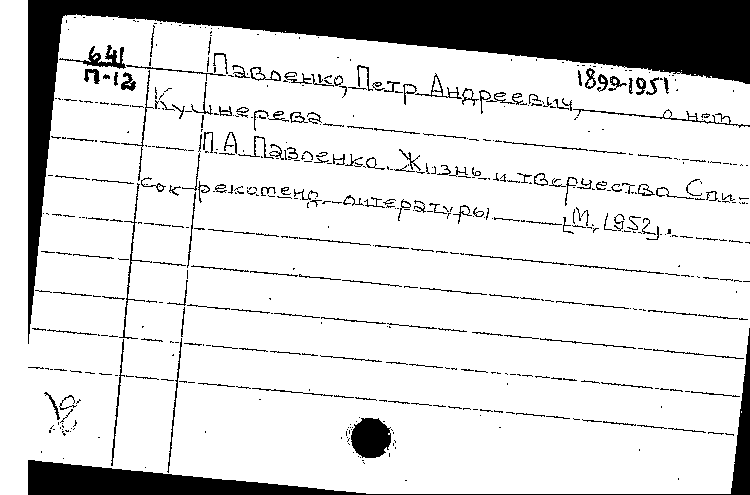 641
П-12
Павленко, Петр Андреевич, 1899-1951 о нем.
Кушнерева
П.А. Павленко. Жизнь и творчество Спи-
сок рекоменд. литературы. [М, 1952].